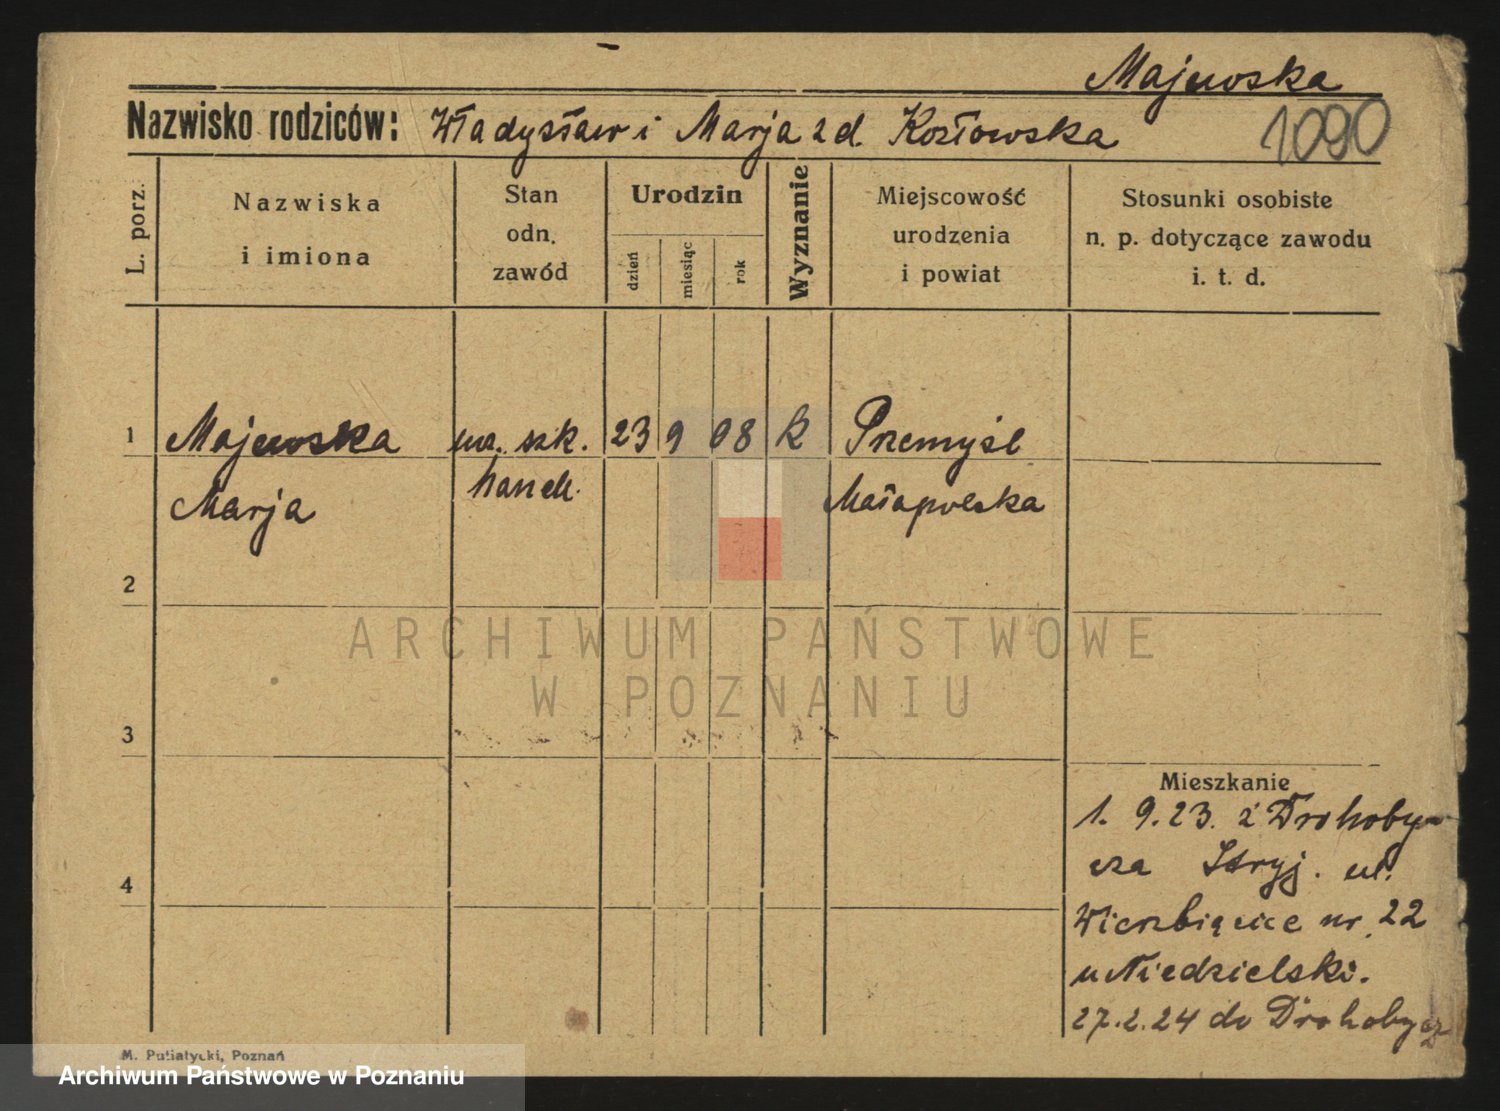 Majewska
Nazwisko rodziców: Władysław i Marja z d. Kozłowska
1090
L. porz.
Nazwiska
i imiona
Stan
odn.
zawód
Urodzin
dzień
miesiąc
rok
Wyznanie
Miejscowość
urodzenia
i powiat
Stosunki osobiste
n. p. dotyczące zawodu
i. t. d.
1 Majewska ucz. szk. 23 9 08 k Przemyśl
Marja handl. Małapolska
2
3
4
Mieszkanie
1. 9. 23. z Drohoby-
cza Stryj. ul.
Wierzbięcice nr. 22
u Niedzielski.
27. 2. 24 do Drohobycz
ARCHIWUM PAŃSTWOWE
W POZNANIU
M. Putiatycki, Poznań
Archiwum Państwowe w Poznaniu